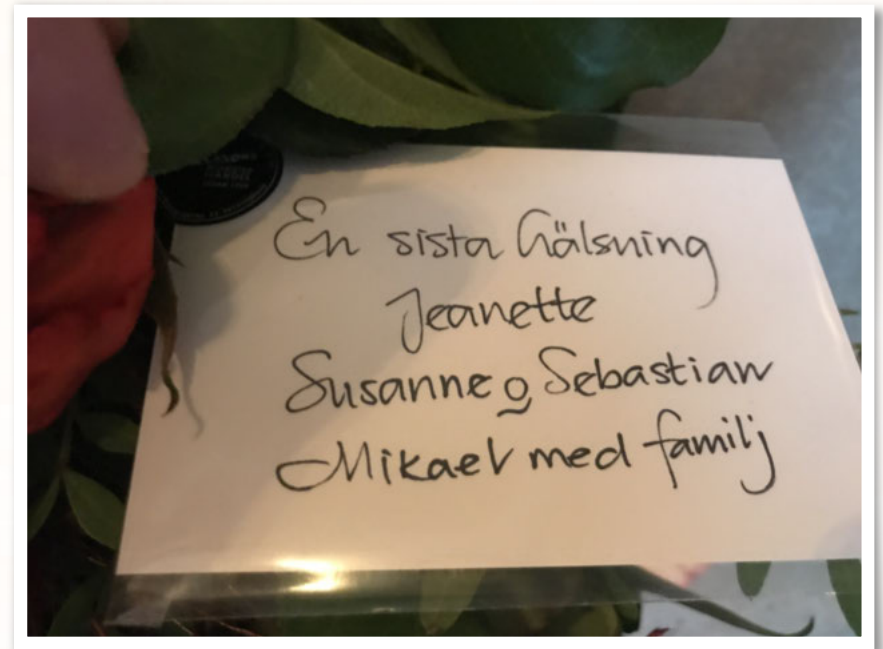 En sista hälsning
Jeanette
Susanne o Sebastian
Mikael med familj